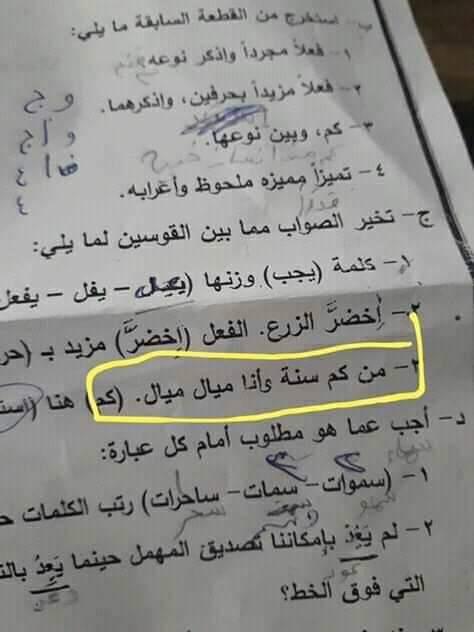 ب- استخرج من القطعة السابقة ما يلي:
١- فعلاً مجرداً واذكر نوعه
٢- فعلاً مزيداً بحرفين، واذكرهما.
٣- كم، وبين نوعها.
٤- تميزاً مميزه ملحوظ وأعرابه.
ج- تخير الصواب مما بين القوسين لما يلي:
١- كلمة (يجب) وزنها (يعل – يفل – يفعل
٢- اِخضرَّ الزرع. الفعل (اِخضرَّ) مزيد بـ (حر
٢- من كم سنة وأنا ميال ميال. (كم) هنا (است
د- أجب عما هو مطلوب أمام كل عبارة:
١- (سموات– سمات– ساحرات) رتب الكلمات ح
٢- لم يَعُدْ بإمكاننا تصديق المهمل حينما يَعِدُ بالت
التي فوق الخط؟